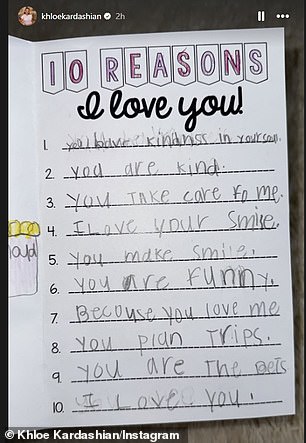 khloekardashian 2h
10 REASONS
I love you!
1. you have kindness in your soul.
2. you are kind.
3. you Take care fo me.
4. I Love your Smile.
5. you make smile.
6. you are funny.
7. Becouse you love me
8. you plan Trips.
9. you are The Bets
10. I Love you.
© Khloe Kardashian/Instagram